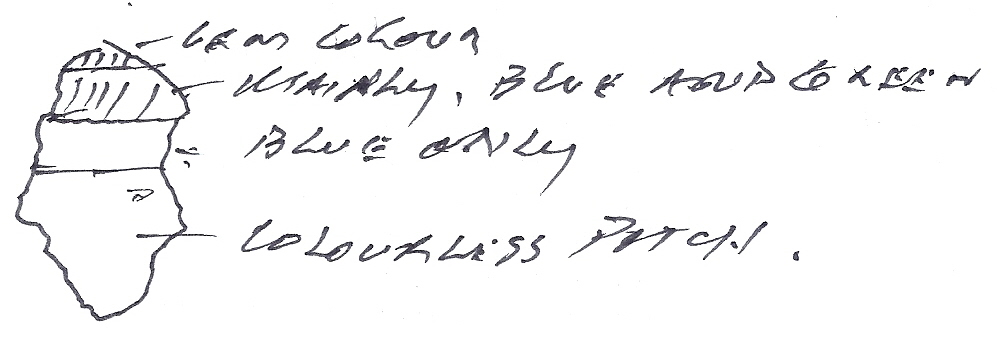 GEM COLOUR
MAINLY, BLUE AND GREEN
BLUE ONLY
COLOURLESS PATCH.